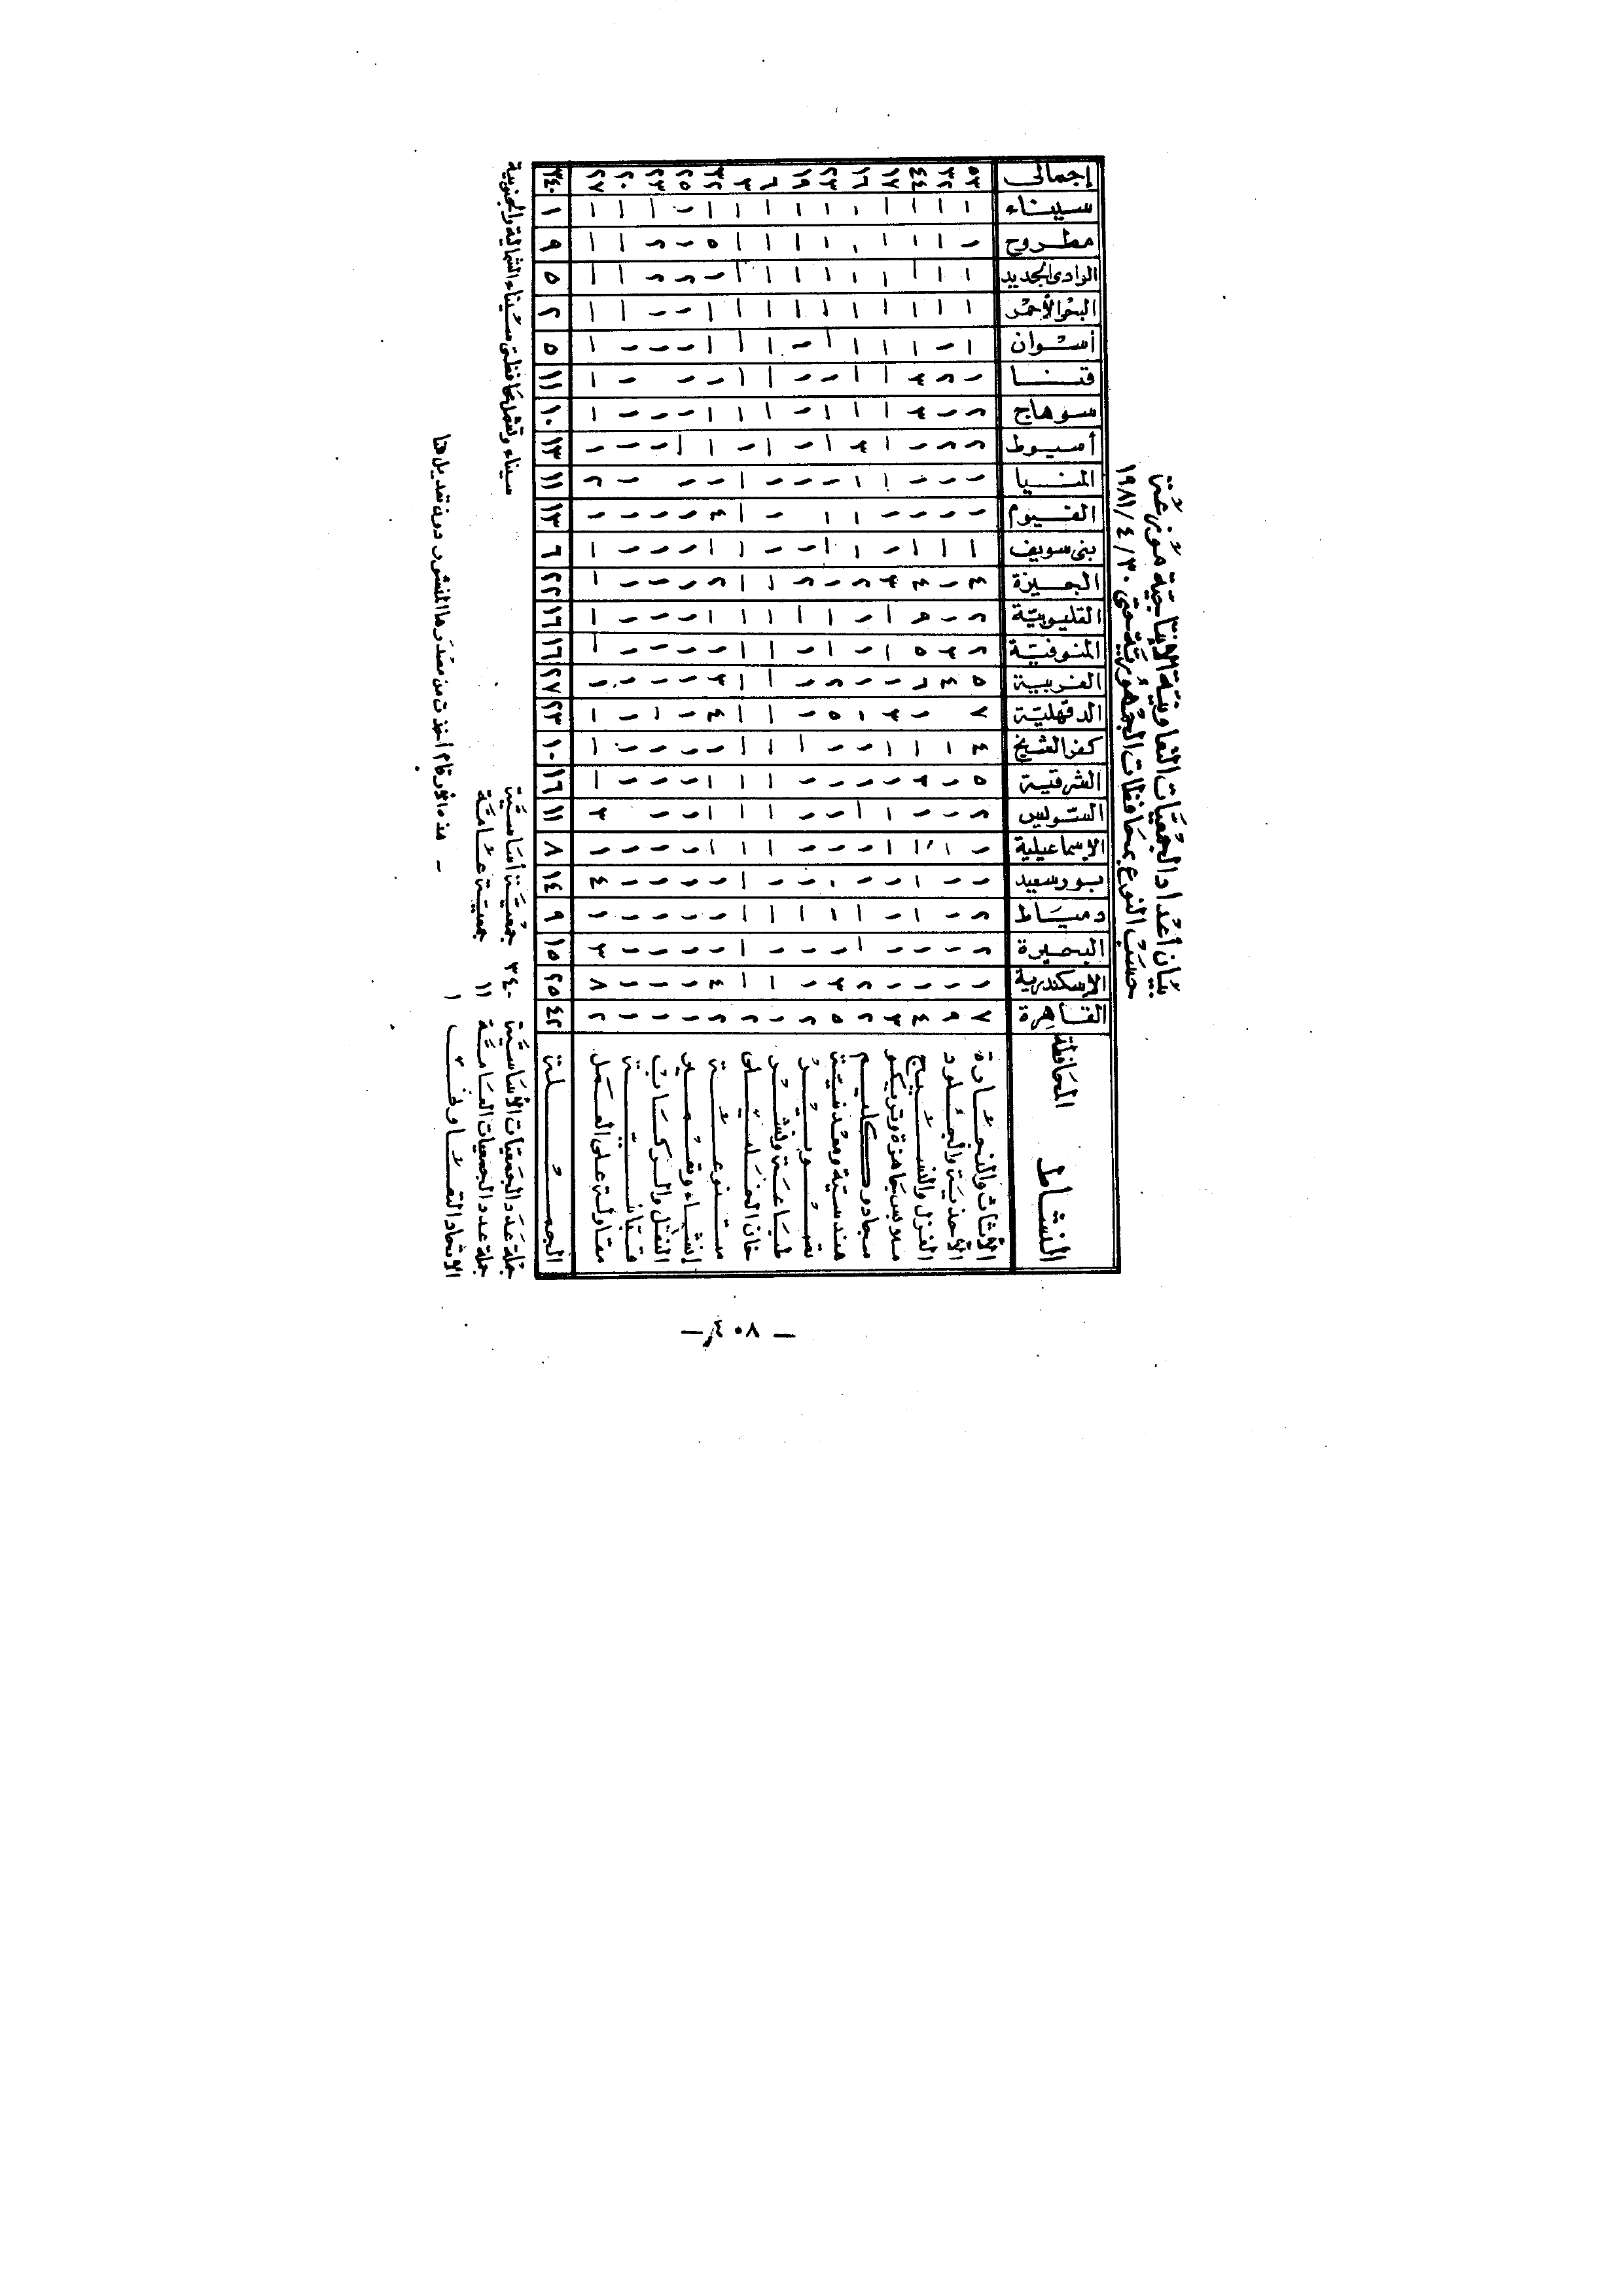 بيان أعداد الجمعيات التعاونية الإنتاجية موزعة
حسب النوع بمحافظات الجمهورية حتى ٣٠/٤/١٩٨١
النشاط المحافظة القاهرة الإسكندرية البحيرة دمياط بورسعيد الإسماعيلية السويس الشرقية كفر الشيخ الدقهلية الغربية المنوفية القليوبية الجيزة بنى سويف الفيوم المنيا أسيوط سوهاج قنا أسوان البحر الأحمر الوادى الجديد مطروح سيناء إجمالى
الأثاث والنجارة ٧ ١ ٢ ٢ ١ ١ ٢ ٥ ٤ ٧ ٥ ٢ ٢ ٤ - ١ ١ ٢ ٢ ١ - - - ١ - ٥٣
الأحذية والجلود ٩ ١ ١ ١ ١ - ١ ١ - ٤ ٣ ١ ١ - ١ ١ ٢ ١ ٢ ١ - - - - ٣٢
الغزل والنسيج ٤ ١ ١ - - - ١ ٣ - ١ ٦ ٥ ٩ ٤ - ١ ١ ١ ٣ ٣ - - - - - ٤٤
ملابس جاهزة وتريكو ٣ ١ ١ ١ ١ - - ١ - ٣ ١ - - ٣ ١ ١ - - - - - - - - - ١٧
سجاد وكليم ٢ ٢ - - ١ ١ - ١ ١ - ١ ١ ١ ٢ - - - ٣ - - - - - - - ١٦
هندسية ومعدنية ٥ ٣ ١ - - ١ ١ ١ ١ ٥ ٢ - - ١ - - ١ - - ١ - - - - - ٢٣
تصوير ٢ ١ ١ - ١ ١ ١ ١ - ١ ١ ١ - ٢ ١ ١ ١ ١ ١ ١ - - - - ١٩
طباعة ونشر ١ - ١ - ١ - - - - - - - - - ١ ١ ١ - - - - - - - - ٦
خان الخليلى ٢ - - - - - - - - - - - - - - - - ١ - - - - - - - ٣
متنوعة ٢ ٤ ١ ١ ١ - - - ١ ٤ ٣ ١ - ٢ - ٤ ١ - - ١ - - ١ ٥ - ٣٢
إنشاء وتعمير ١ ١ ١ ١ ١ ١ ١ ١ ١ ١ ١ ١ ١ ١ ١ ١ ١ - ١ ١ ١ ١ ٢ ١ ١ ٢٥
النقل والركاب ١ ١ ١ ١ ١ ١ ١ ١ ١ - ١ ١ ١ ١ ١ ١ ١ ١ ١ ١ ٢ ٢ - ٢٣
١ ١ ١ ١ ١ ١ ١ ١ ١ ١ ١ ١ ١ ١ ١ ١ ١ ١ ١ ١ - - - - ٢٠
مقاولة على العمل ٢ ٨ ٣ ١ ٤ ١ ٣ - - - ١ - - - - ١ ٢ ١ - - - - - - - ٢٧
الجملة ٤٢ ٢٥ ١٥ ٩ ١٤ ٨ ١١ ١٦ ١٠ ٢٣ ٢٧ ١٦ ١٦ ٢٢ ٦ ١٣ ١١ ١٣ ١٠ ١١ ٥ ٢ ٥ ٩ ١ ٣٤٠
جملة عدد الجمعيات الأساسية ٣٤٠ جمعية أساسية سيناء وتشمل محافظتى سيناء الشمالية والجنوبية
جملة عدد الجمعيات العامة ١١ جمعية عامة
الاتحاد التعاونى ١
- هذه الأرقام أخذت من مصدرها المنشور دون تعديل هنا
- ٤٠٨ -